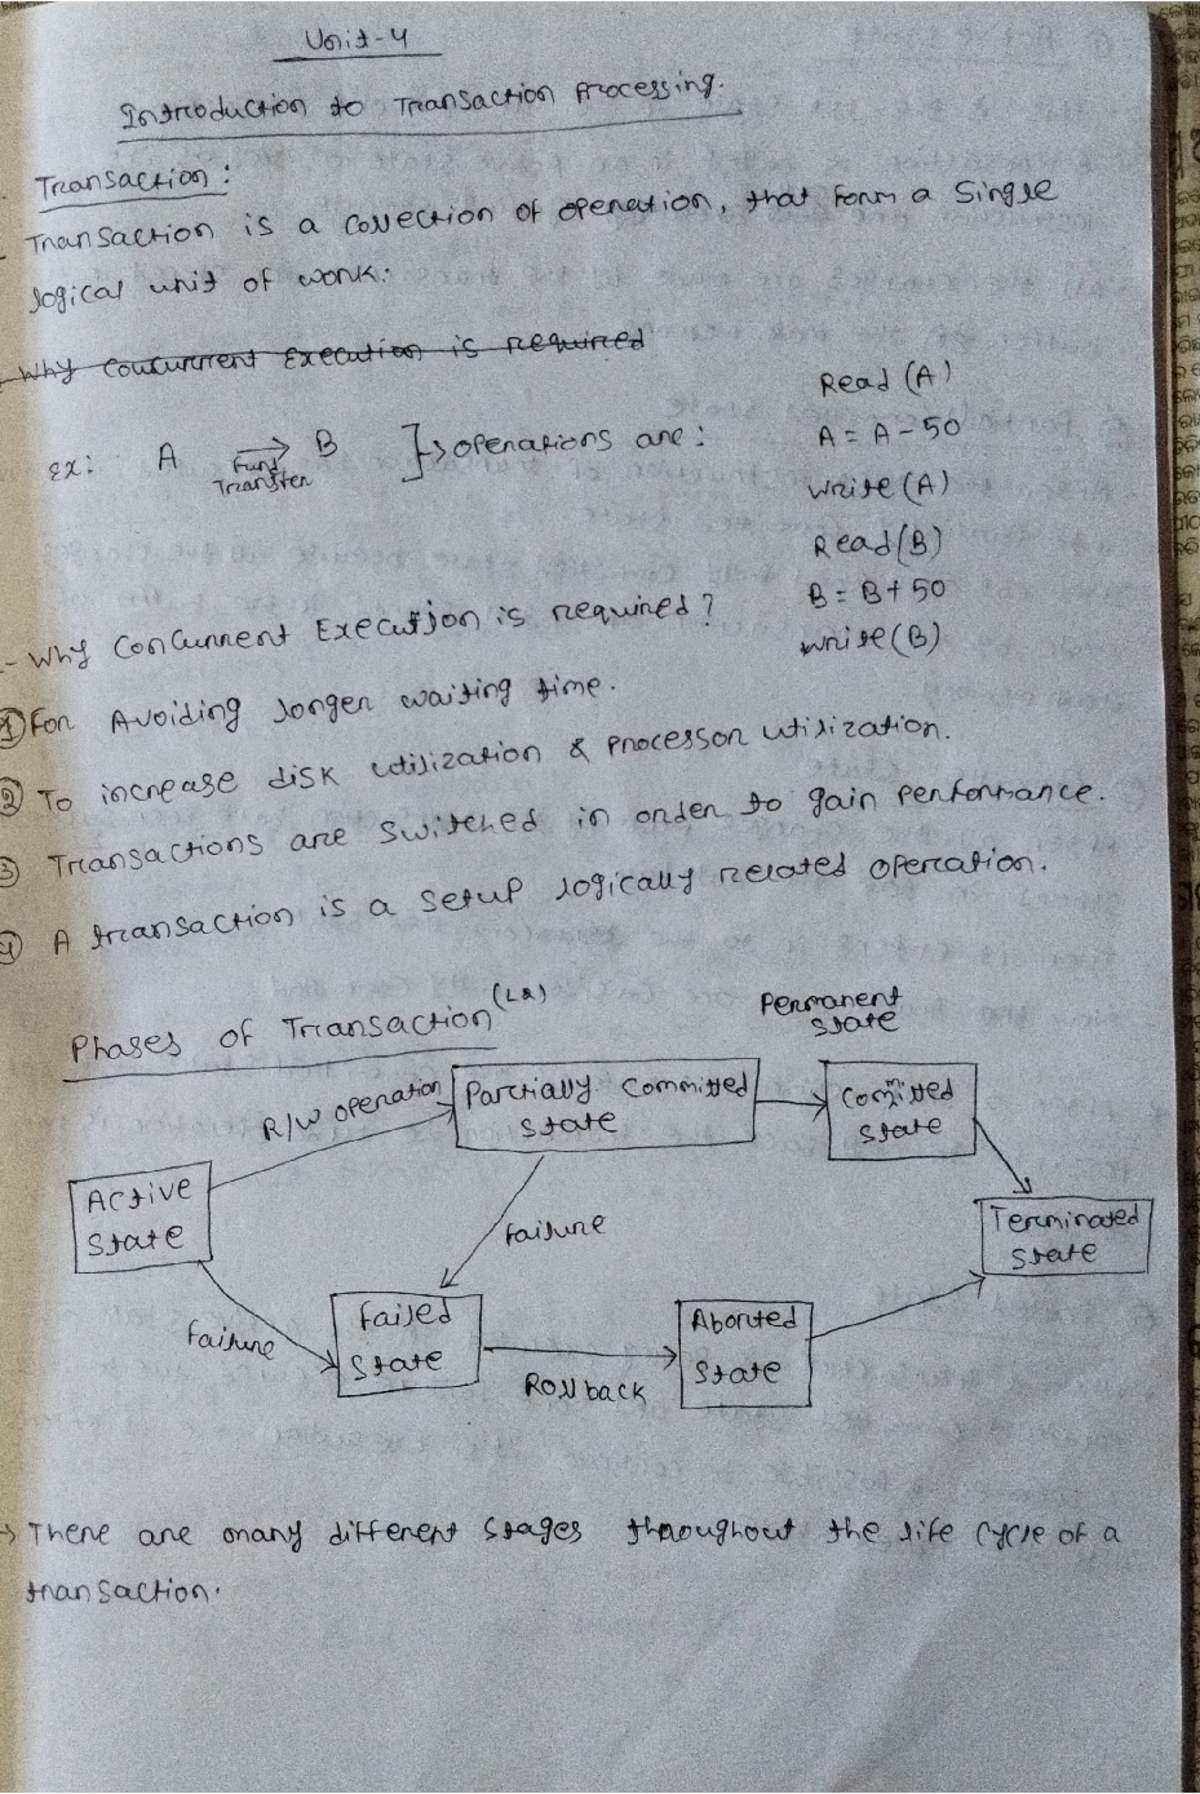 Unit-4
Introduction to Transaction Processing.
Transaction:
Transaction is a collection of operation, that form a single
logical unit of work.
- Why Concurrent Execution is required
Ex: A → B } → operations are:
Fund
Transfer
Read (A)
A = A - 50
write (A)
Read (B)
B = B + 50
write (B)
- Why Concurrent Execution is required?
① For Avoiding longer waiting time.
② To increase disk utilization & processor utilization.
③ Transactions are switched in order to gain performance.
④ A transaction is a setup logically related operation.
Phases of Transaction (LQ)
Permanent
state
R/W operation
Partially Committed
state
Committed
state
Active
state
failure
Terminated
state
failure
failed
state
Rollback
Aborted
state
→ There are many different stages throughout the life cycle of a
transaction.